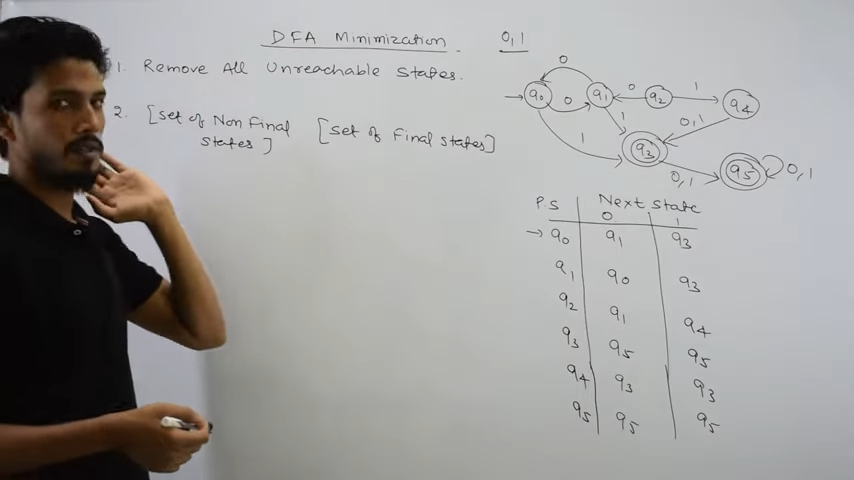 DFA Minimization.
1. Remove All Unreachable States.
2. [Set of Non Final
States]
[Set of Final States]
0,1
0
q0
0
q1
0
q2
1
q4
1
1
0,1
q3
0,1
q5
0,1
P.S Next State
0 1
→ q0 q1 q3
q1 q0 q3
q2 q1 q4
q3 q5 q5
q4 q3 q3
q5 q5 q5